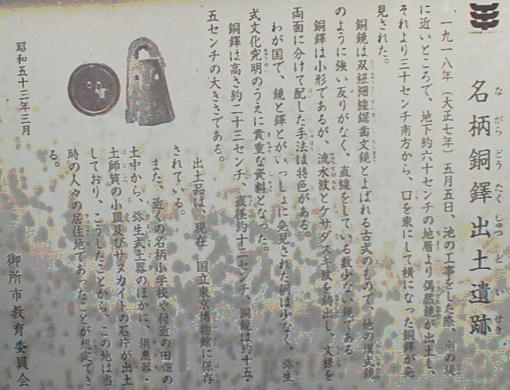 名柄銅鐸出土遺跡
ながらどうたくしゅつどいせき
一九一八年(大正七年)五月五日、池の工事をした際、南の堤
に近いところで、地下約六十センチの地層より偶然鏡が出土し、
それより三十センチ南方から、口を東にして横になった銅鐸が発
見された。
銅鏡は双鈕細線鋸歯文鏡とよばれる古式のもので、他の漢式鏡
のように強い反りがなく、直線をしている数少ない鏡である。
銅鐸は小形であるが、流水紋とケサダスキ紋を鋳出し、文様を
両面に分けて配した手法は特色がある。
わが国で、鏡と鐸とがいっしょに発見された例は少なく、弥生
式文化究明のうえに貴重な資料となった。
銅鐸は高さ約二十三センチ、直径約十二センチ、銅鏡は約十五・
五センチの大きさである。
出土品は、現在 国立東京博物館に保存
されている。
また、近くの名柄小学校や付近の田畑の
土中から、弥生式土器のほかに、須恵器・
土師質の小皿及びサヌカイトの石片が出土
しており、こうしたことから、この地は当
時の人々の居住地であったことが想定でき
る。
昭和五十三年三月
御所市教育委員会